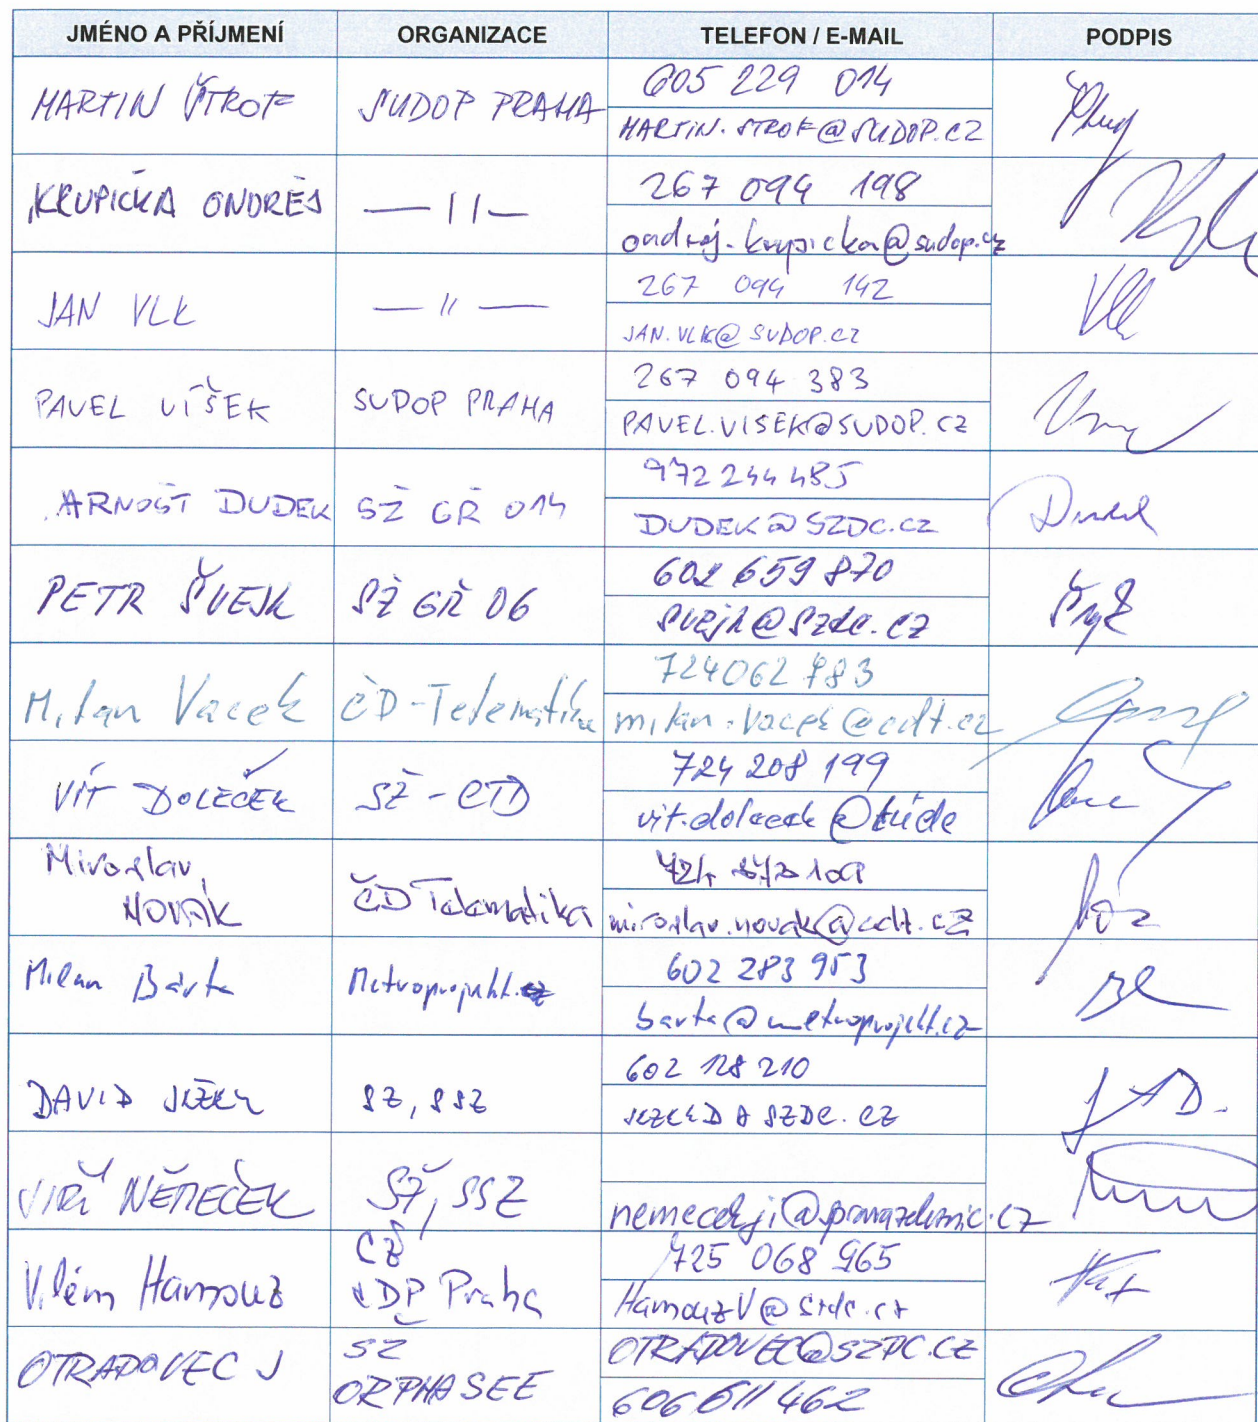 JMÉNO A PŘÍJMENÍ ORGANIZACE TELEFON / E-MAIL PODPIS
MARTIN ŠTROF SUDOP PRAHA 605 229 014
MARTIN.STROF@SUDOP.CZ
KRUPIČKA ONDŘEJ — 11 — 267 094 198
ondrej.krupicka@sudop.cz
JAN VLK — 11 — 267 094 142
JAN.VLK@SUDOP.CZ
PAVEL VÍŠEK SUDOP PRAHA 267 094 383
PAVEL.VISEK@SUDOP.CZ
ARNOŠT DUDEK SŽ GŘ O14 972 244 485
DUDEK@SZDC.CZ
PETR ŠVEJK SŽ GŘ 06 602 659 870
svejk@szdc.cz
Milan Vacek ČD-Telematika 724062783
milan.vacek@cdt.cz
VÍT DOLEČEK SŽ - CTD 724 208 199
Miroslav
NOVÁK ČD Telematika
miroslav.novak@cdt.cz
Milan Bárta Metroprojekt 602 283 953
barta@metroprojekt.cz
DAVID SŽ, SSZ 602 128 210
JIŘÍ NĚMEČEK SŽ, SSZ
Vilém Hamouz Praha 725 068 965
HamouzV@szdc.cz
OTRADOVEC J SŽ OTRADOVEC@SZDC.CZ
606 611 462